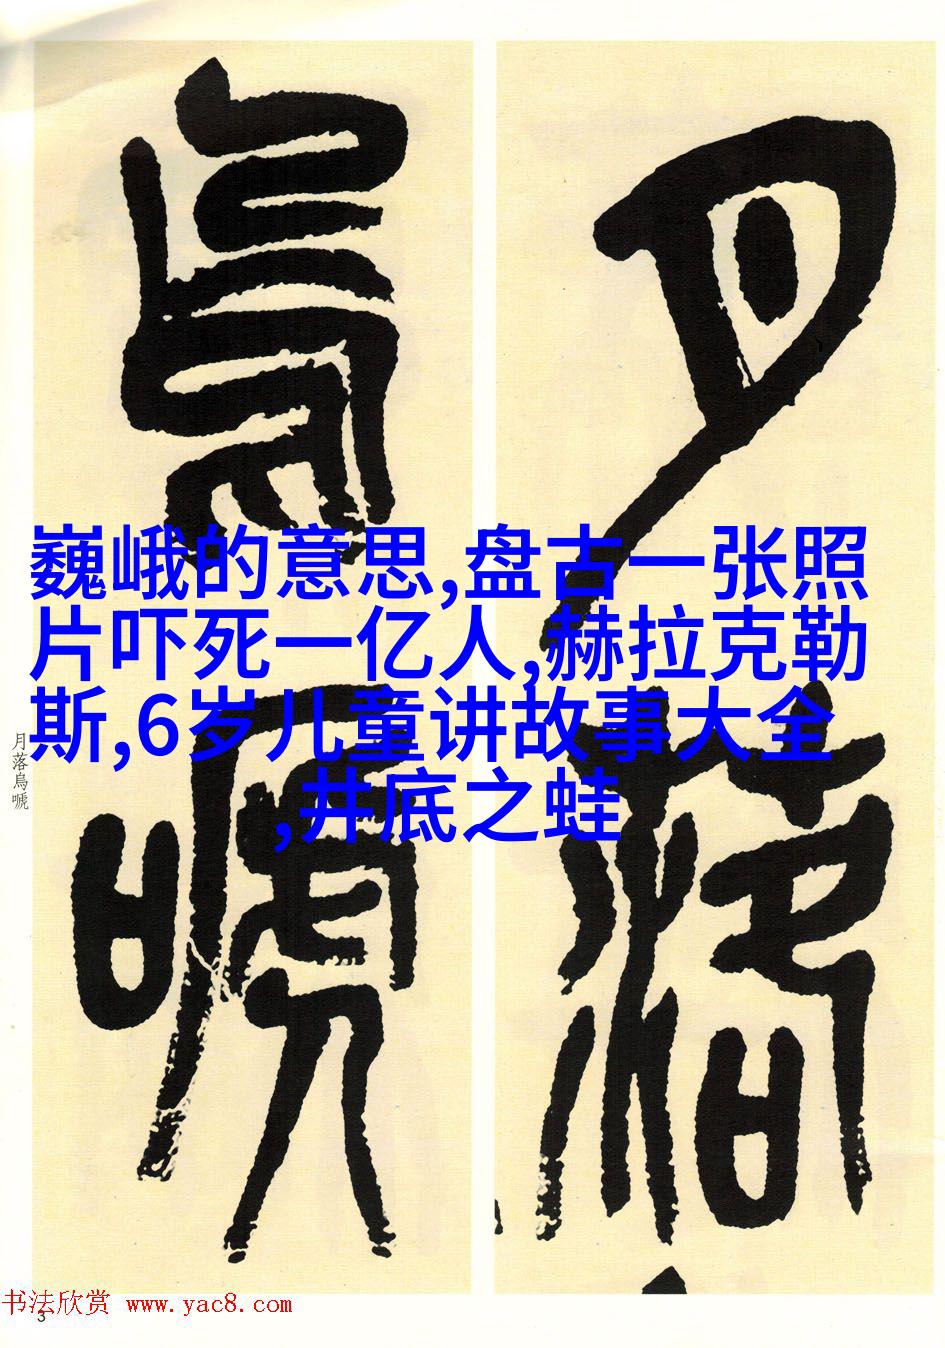 月落
烏嗁
巍峨的意思,盘古一张照
片吓死一亿人,赫拉克勒
斯,6岁儿童讲故事大全
,井底之蛙
月落烏嗁
书法欣赏 www.yac8.com
3